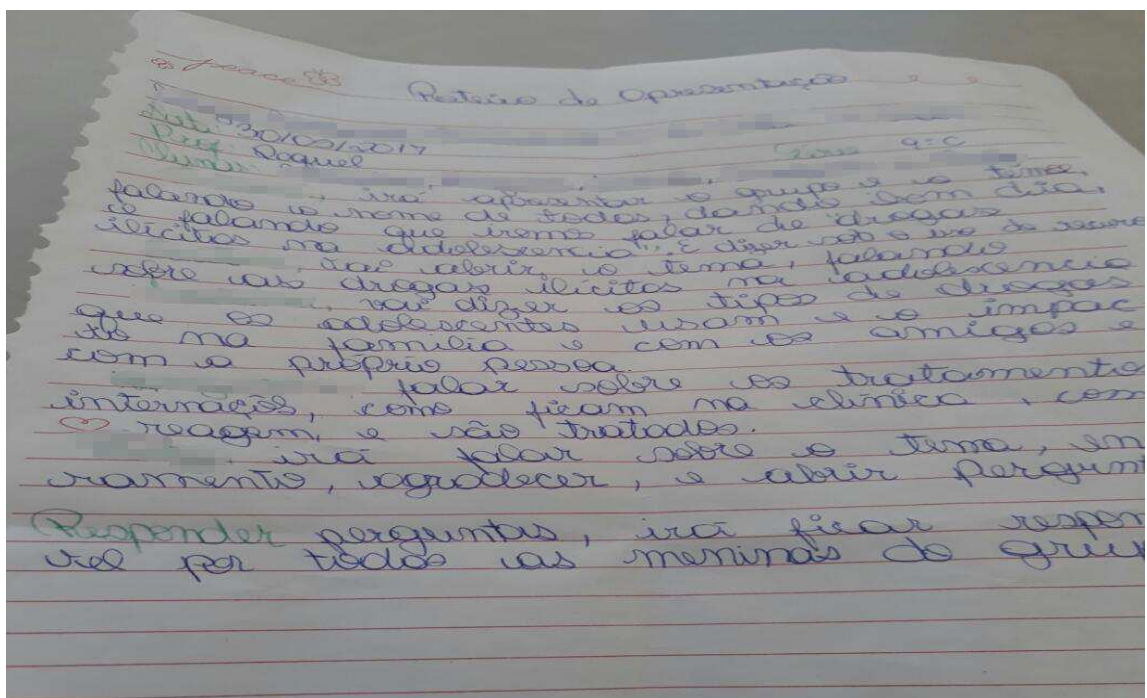 peace
Roteiro de Apresentação
Dat: 30/03/2017
Prof: Raquel 9º C
Alunas:
, irá apresentar o grupo e o tema,
falando o nome de todos, dando bom dia,
e falando que iremos falar de "drogas
ilícitas na adolescencia". E dizer sob o uso do recurso
vai abrir o tema, falando
sobre as drogas ilícitas na adolescencia
, vai dizer os tipos de drogas
que os adolescentes usam e o impac
to na família e com os amigos e
com a própria pessoa.
falar sobre os tratamento
internaçõs, como ficam na clínica, com
reagem, e são tratados.
irá falar sobre o tema, en
ramento, agradecer, e abrir pergunt
Responder perguntas, irá ficar respon
vel por todas as meninas do grup